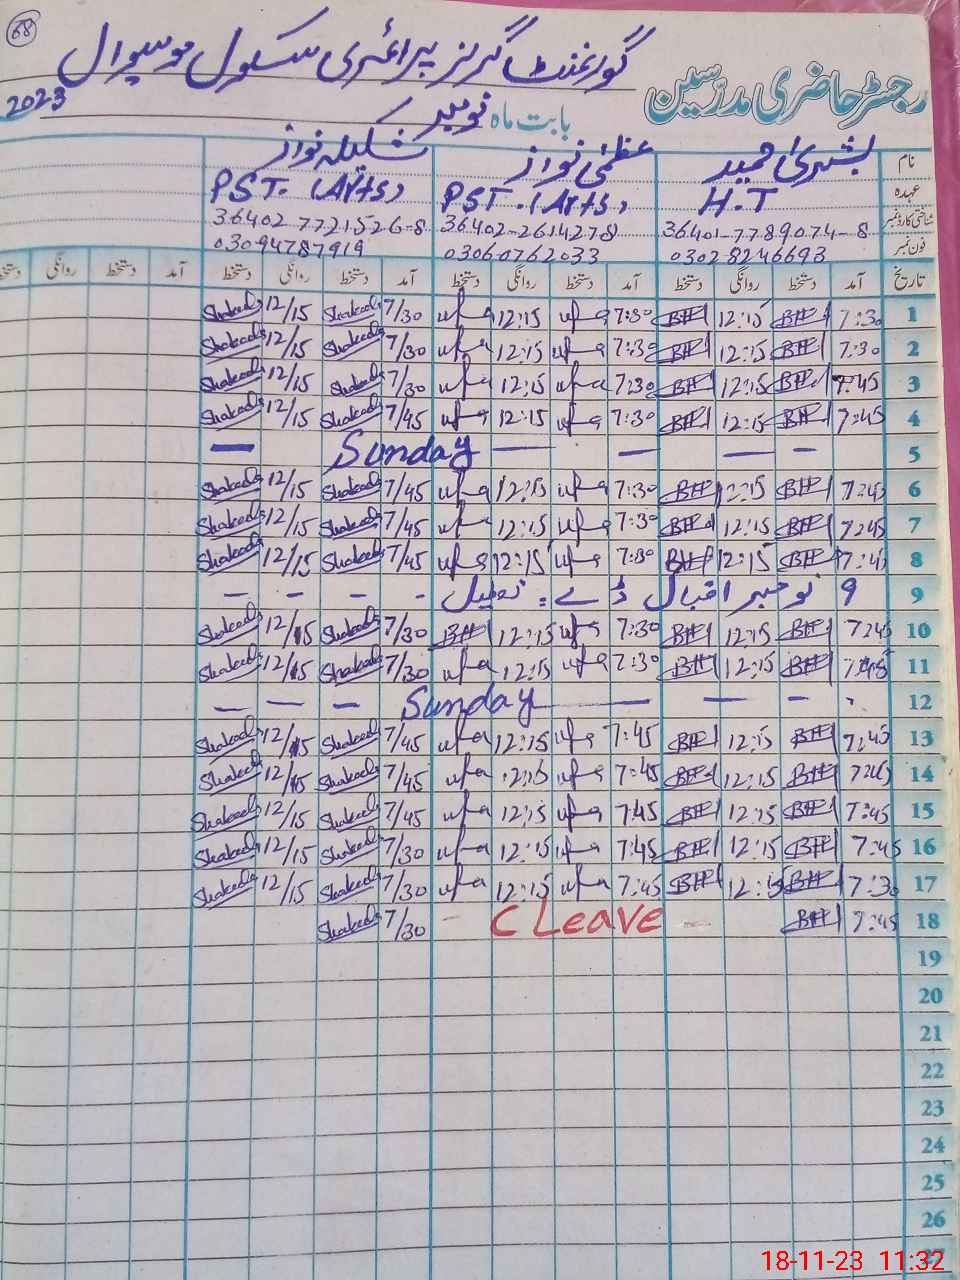 68
گورنمنٹ گرلز پرائمری سکول موسپوال
رجسٹر حاضری مدرسین
بابت ماہ نومبر 2023
نام بشریٰ حمید عظمیٰ نواز شکیلہ نواز
عہدہ H.T PST.(Arts) PST.(Arts)
شناختی کارڈ نمبر 36401-7789074-8 36402-2614278 36402-7721526-8
فون نمبر 03028246693 03060762033 03094787919
تاریخ آمد دستخط روانگی دستخط آمد دستخط روانگی دستخط آمد دستخط روانگی دستخط آمد دستخط روانگی دستخط
1 7:30 BH 12:15 BH 7:30 12:15 7/30 Shakeela 12/15 Shakeela
2 7:30 BH 12:15 BH 7:30 12:15 7/30 Shakeela 12/15 Shakeela
3 7:45 BH 12:15 BH 7:30 12:15 7/30 Shakeela 12/15 Shakeela
4 7:45 BH 12:15 BH 7:30 12:15 7/45 Shakeela 12/15 Shakeela
5 — — — — Sunday —
6 7:45 BH 12:15 BH 7:30 12:15 7/45 Shakeela 12/15 Shakeela
7 7:45 BH 12:15 BH 7:30 12:15 7/45 Shakeela 12/15 Shakeela
8 7:45 BH 12:15 BH 7:30 12:15 7/45 Shakeela 12/15 Shakeela
9 9 نومبر اقبال ڈے تعطیل - - - -
10 7:45 BH 12:15 BH 7:30 12:15 BH 7/30 Shakeela 12/15 Shakeela
11 7:45 BH 12:15 BH 7:30 12:15 7/30 Shakeela 12/15 Shakeela
12 - — — — Sunday — — —
13 7:45 BH 12:15 BH 7:45 12:15 7/45 Shakeela 12/15 Shakeela
14 7:45 BH 12:15 BH 7:45 12:15 7/45 Shakeela 12/15 Shakeela
15 7:45 BH 12:15 BH 7:45 12:15 7/45 Shakeela 12/15 Shakeela
16 7:45 BH 12:15 BH 7:45 12:15 7/30 Shakeela 12/15 Shakeela
17 7:30 BH 12:15 BH 7:45 12:15 7/30 Shakeela 12/15 Shakeela
18 7:45 BH C Leave 7/30 Shakeela
19
20
21
22
23
24
25
26
27
18-11-23 11:32